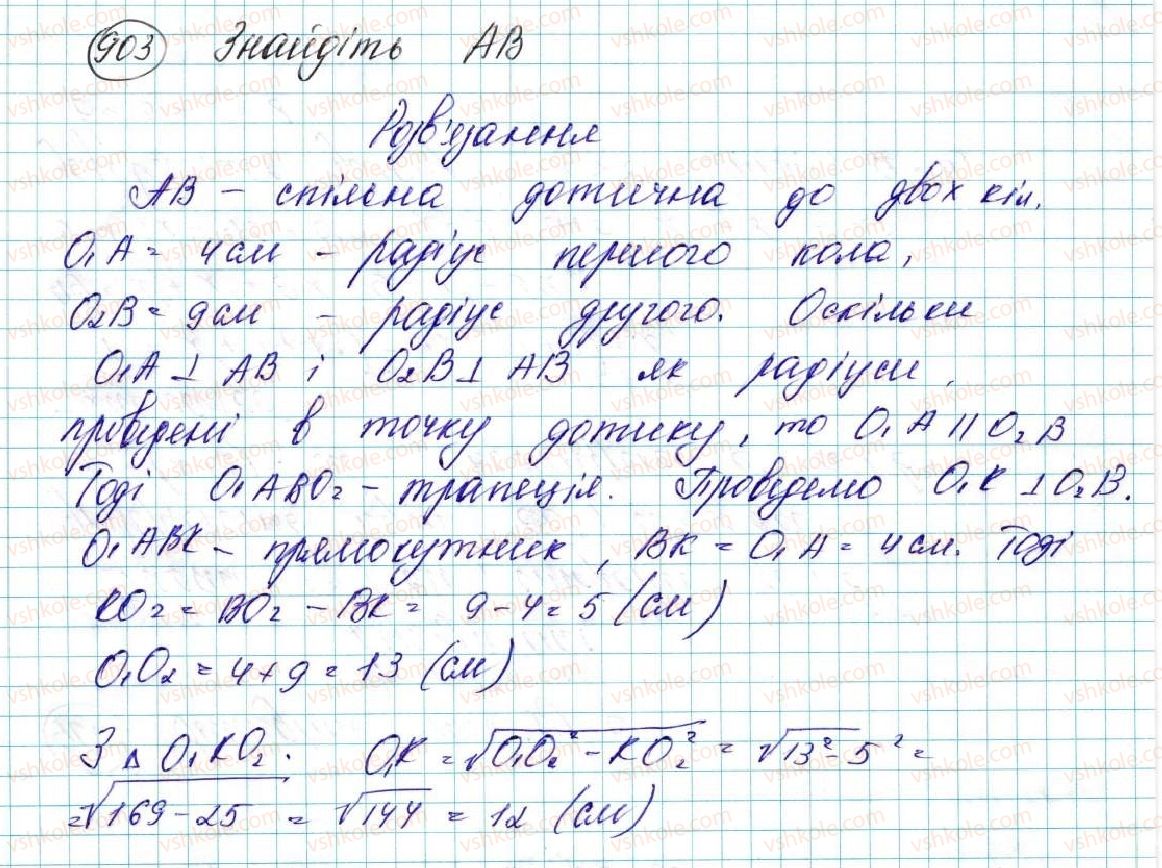 903 Знайдіть AB
Розв'язання
AB – спільна дотична до двох кіл.
O₁A = 4 см – радіус першого кола,
O₂B = 9 см – радіус другого. Оскільки
O₁A ⊥ AB і O₂B ⊥ AB як радіуси,
проведені в точку дотику, то O₁A || O₂B
Тоді O₁ABO₂ – трапеція. Проведемо O₁K ⊥ O₂B.
O₁ABK – прямокутник, BK = O₁A = 4 см. Тоді
KO₂ = BO₂ – BK = 9 – 4 = 5 (см)
O₁O₂ = 4 + 9 = 13 (см)
З Δ O₁KO₂. O₁K = √(O₁O₂² – KO₂²) = √(13² – 5²) =
= √(169 – 25) = √144 = 12 (см)
vshkole.com